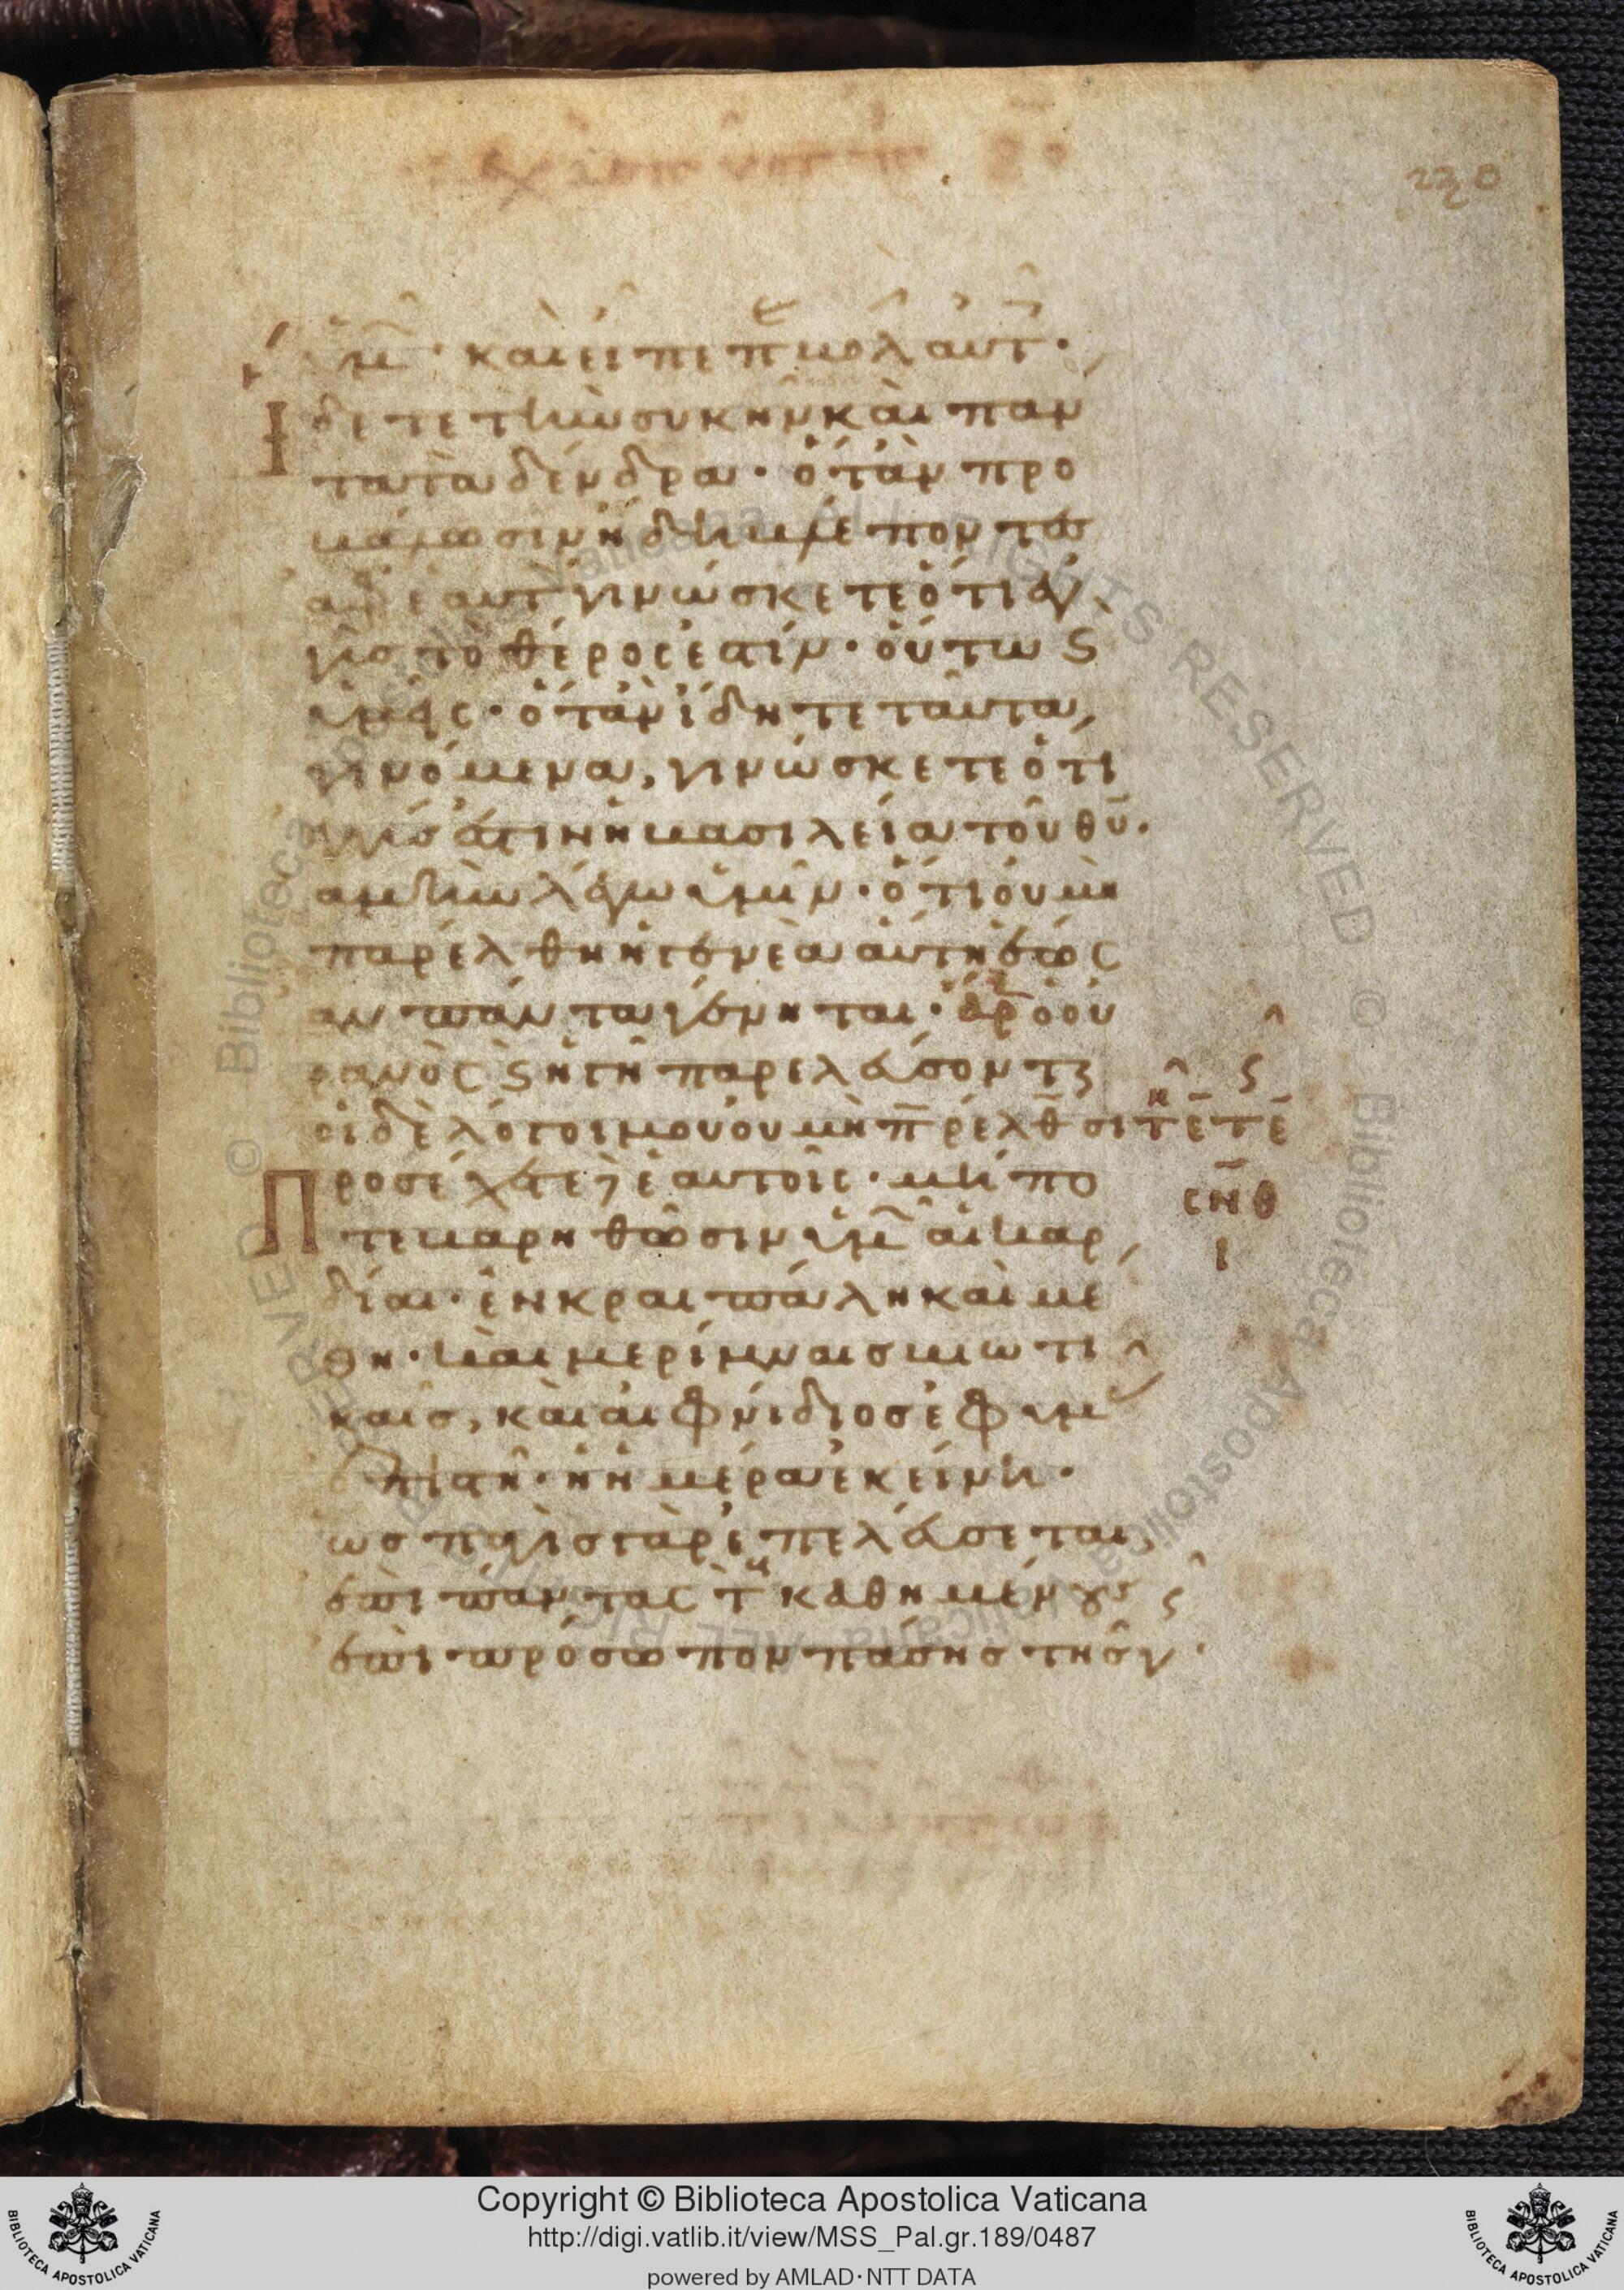 230
ὑμῶ · καὶ εἶπε πβολ αὐτ ·
Ἴδετε τὴν συκῆν καὶ πάν
τα τὰ δένδρα · ὅταν προ
βάλωσιν ἤδη βλέποντες
ἀφ ἑαυτ γινώσκετε ὅτι ἐγ
γὺς τὸ θέρος ἐστίν · οὕτως
ὑμεῖς · ὅταν ἴδητε ταῦτα
γινόμενα, γινώσκετε ὅτι
ἐγγύς ἐστιν ἡ βασιλεία τοῦ θυ ·
ἀμὴν λέγω ὑμῖν · ὅτι οὐ μὴ
παρέλθη ἡ γενεὰ αὕτη ἕως
ἂν πάντα γένηται · ἀρχ ὁ οὐ
ρανὸς ϛ ἡ γῆ παρελεύσοντ
οἱ δὲ λόγοι μου οὐ μὴ πρέλθ σι τε τε
Προσέχετε δ ἑαυτοῖς · μήπο
τε βαρηθῶσιν ὑμῶ αἱ καρ
δίαι · ἐν κραιπάλη καὶ μέ
θη · καὶ μερίμναις βιωτι
καῖς, καὶ αἰφνίδιος ἐφ ὑμ
ἐπιστῆ · ἡ ἡμέρα ἐκείνη ·
ὡς παγὶς γὰρ ἐπελεύσεται
ἐπὶ πάντας τ καθημένους
ἐπὶ πρόσωπον πάσης τῆς γ ·
Copyright © Biblioteca Apostolica Vaticana
http://digi.vatlib.it/view/MSS_Pal.gr.189/0487
powered by AMLAD·NTT DATA
BIBLIOTECA APOSTOLICA VATICANA
BIBLIOTECA APOSTOLICA VATICANA